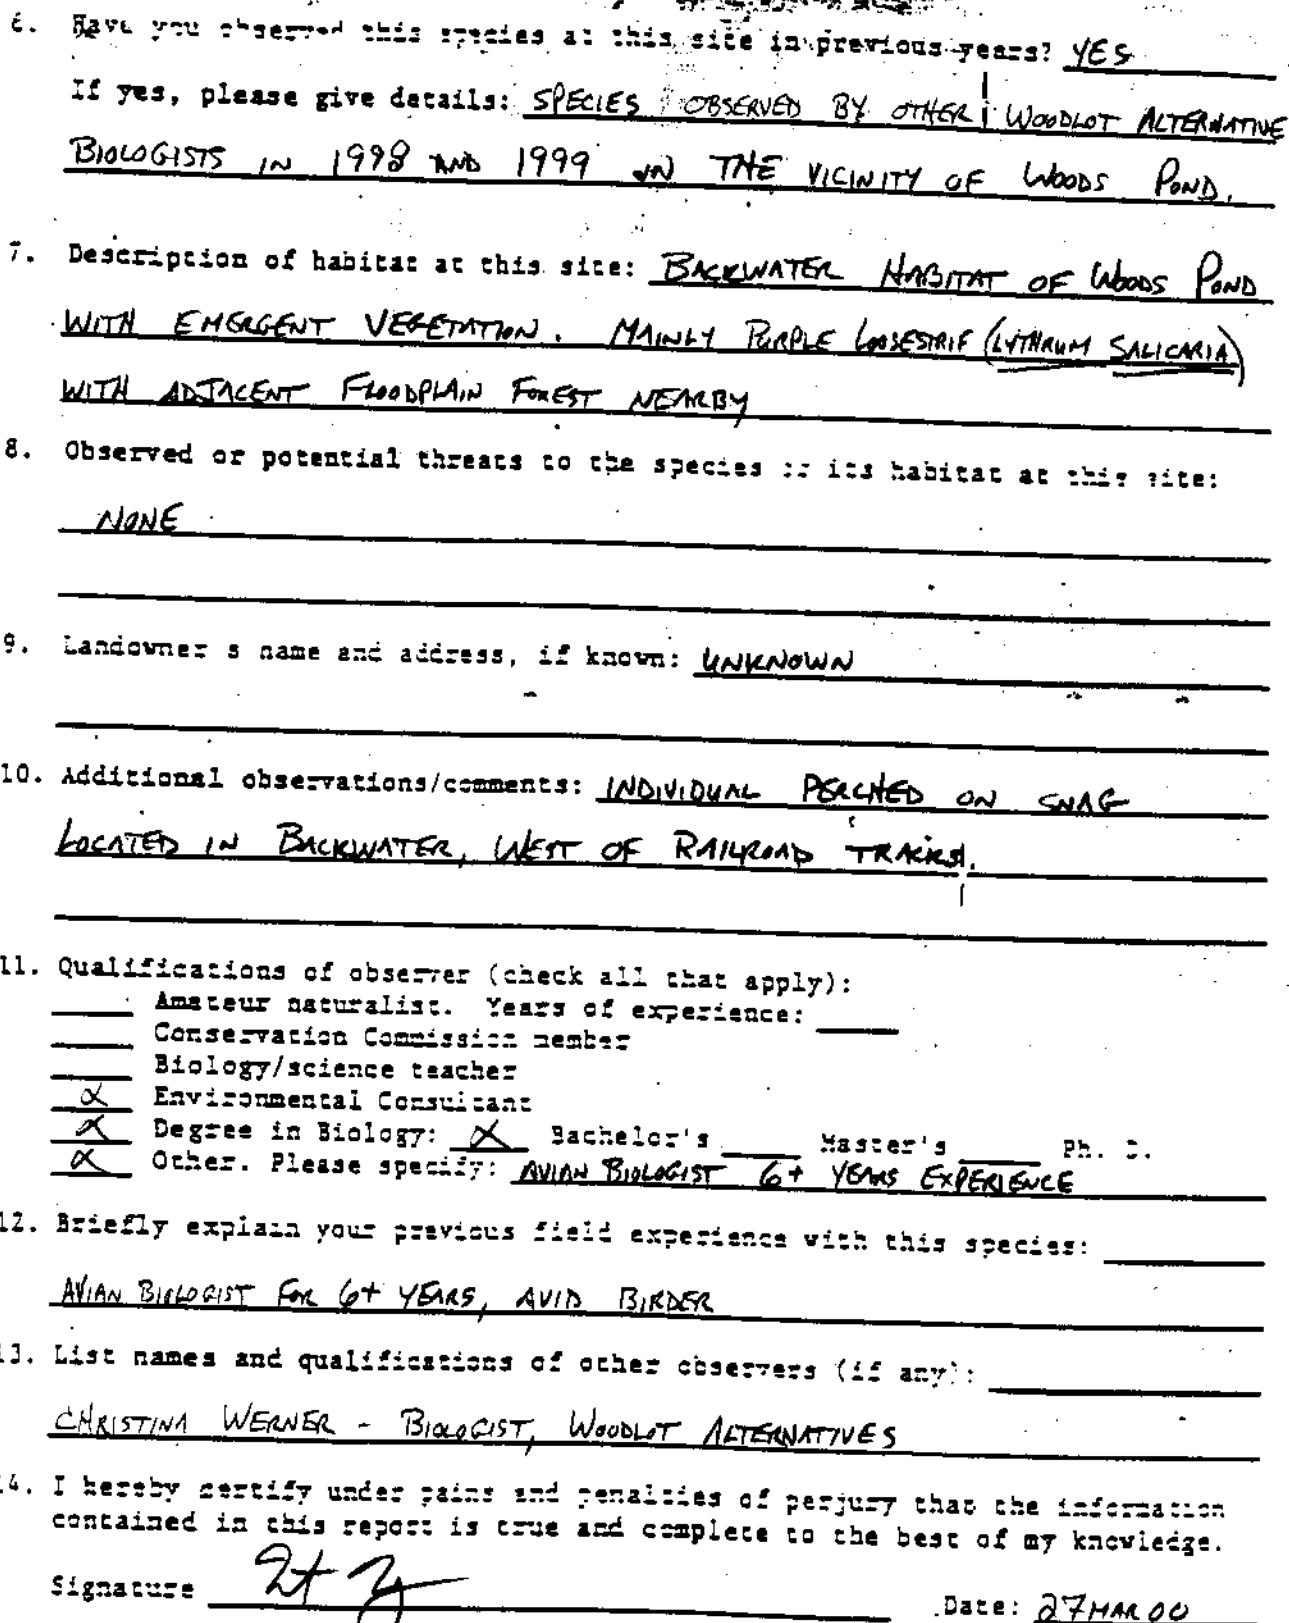 6. Have you observed this species at this site in previous years? YES
If yes, please give details: SPECIES OBSERVED BY OTHER WOODLOT ALTERNATIVE
BIOLOGISTS IN 1998 AND 1999 IN THE VICINITY OF WOODS POND.
7. Description of habitat at this site: BACKWATER HABITAT OF WOODS POND
WITH EMERGENT VEGETATION. MAINLY PURPLE LOOSESTRIF (LYTHRUM SALICARIA)
WITH ADJACENT FLOODPLAIN FOREST NEARBY
8. Observed or potential threats to the species or its habitat at this site:
NONE
9. Landowner s name and address, if known: UNKNOWN
10. Additional observations/comments: INDIVIDUAL PERCHED ON SNAG
LOCATED IN BACKWATER, WEST OF RAILROAD TRACKS.
11. Qualifications of observer (check all that apply):
Amateur naturalist. Years of experience:
Conservation Commission member
Biology/science teacher
X Environmental Consultant
X Degree in Biology: X Bachelor's Master's Ph. D.
X Other. Please specify: AVIAN BIOLOGIST 6+ YEARS EXPERIENCE
12. Briefly explain your previous field experience with this species:
AVIAN BIOLOGIST FOR 6+ YEARS, AVID BIRDER
13. List names and qualifications of other observers (if any):
CHRISTINA WERNER - BIOLOGIST, WOODLOT ALTERNATIVES
14. I hereby certify under pains and penalties of perjury that the information
contained in this report is true and complete to the best of my knowledge.
Signature Date: 27 MAR 00